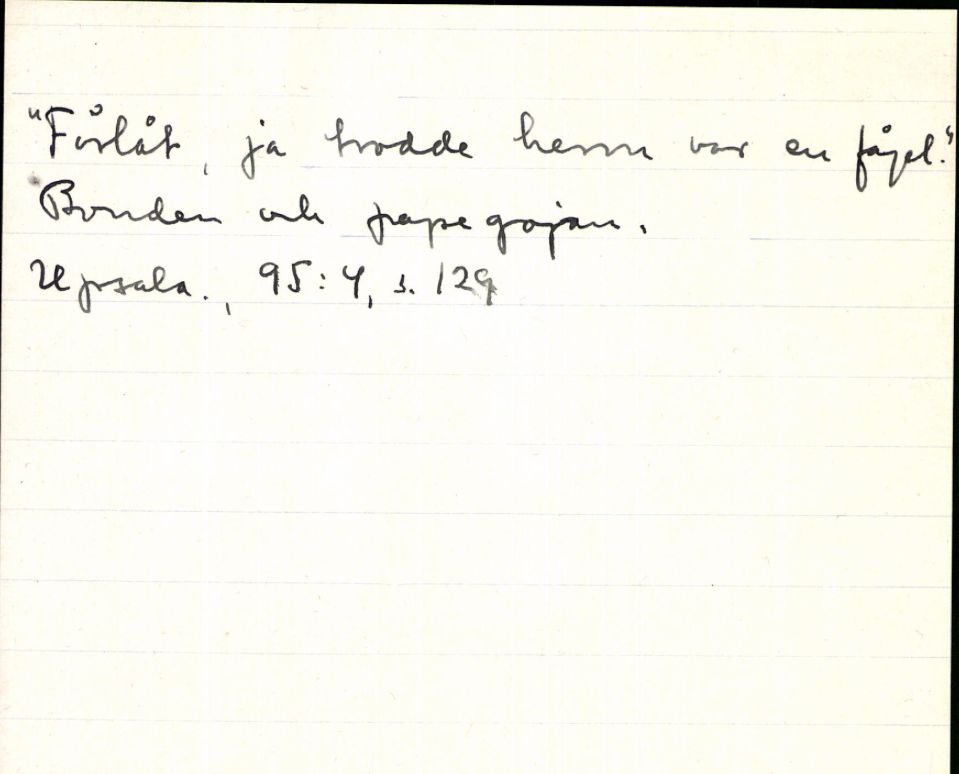 "Förlåt, ja trodde herrn var en fågel."
Bonden och papegojan.
Upsala., 95:4, s. 129